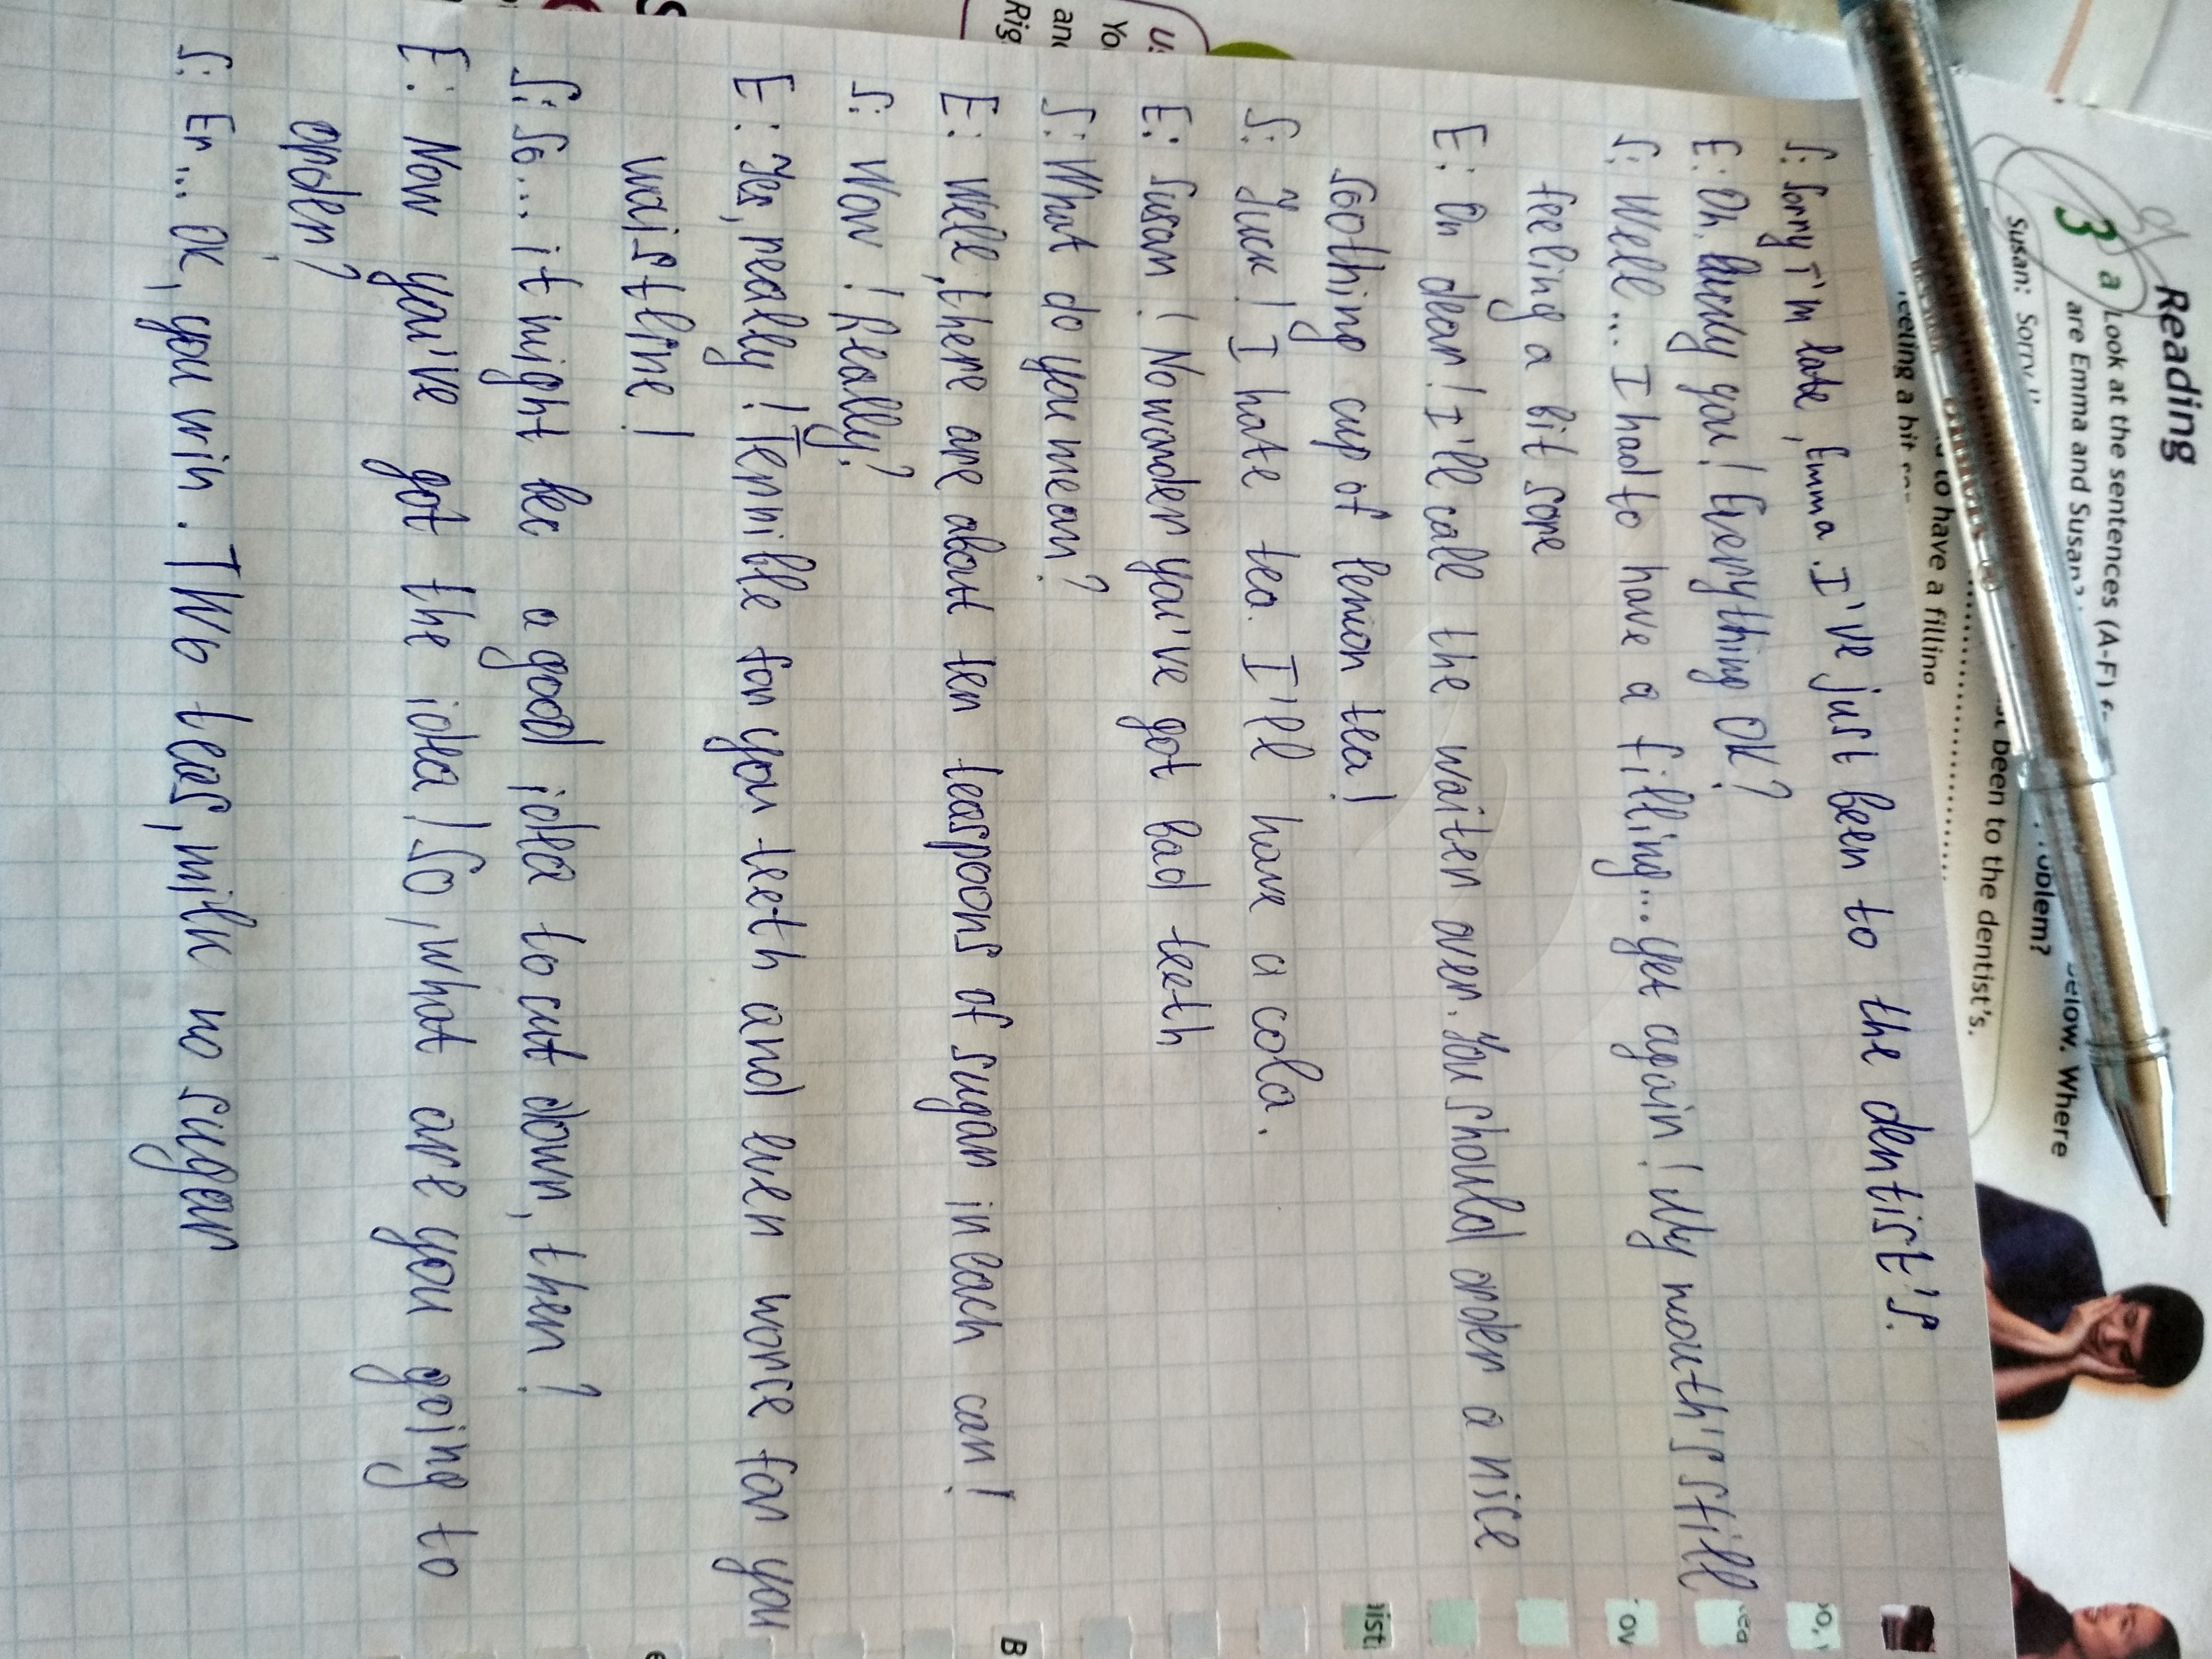 Reading
3 a Look at the sentences (A-F) below. Where
are Emma and Susan? oblem?
Susan: Sorry
st been to the dentist's.
to have a filling
feeling a bit
S: Sorry I'm late, Emma. I've just been to the dentist's.
E: Oh, lucky you! Everything OK?
S: Well... I had to have a filling... yet again! My mouth's still
feeling a bit sore
E: Oh dear! I'll call the waiter over. You should order a nice
soothing cup of lemon tea!
S: Yuck! I hate tea. I'll have a cola.
E: Susan! No wonder you've got bad teeth
S: What do you mean?
E: Well, there are about ten teaspoons of sugar in each can!
S: Wow! Really?
E: Yes, really! Terrible for you teeth and even worce for you
waistline!
S: So... it might be a good idea to cut down, then?
E: Now you've got the idea! So, what are you going to
order?
S: Er... OK, you win. Two teas, milk no sugar
Yo
an
Rig
ist
ov
B